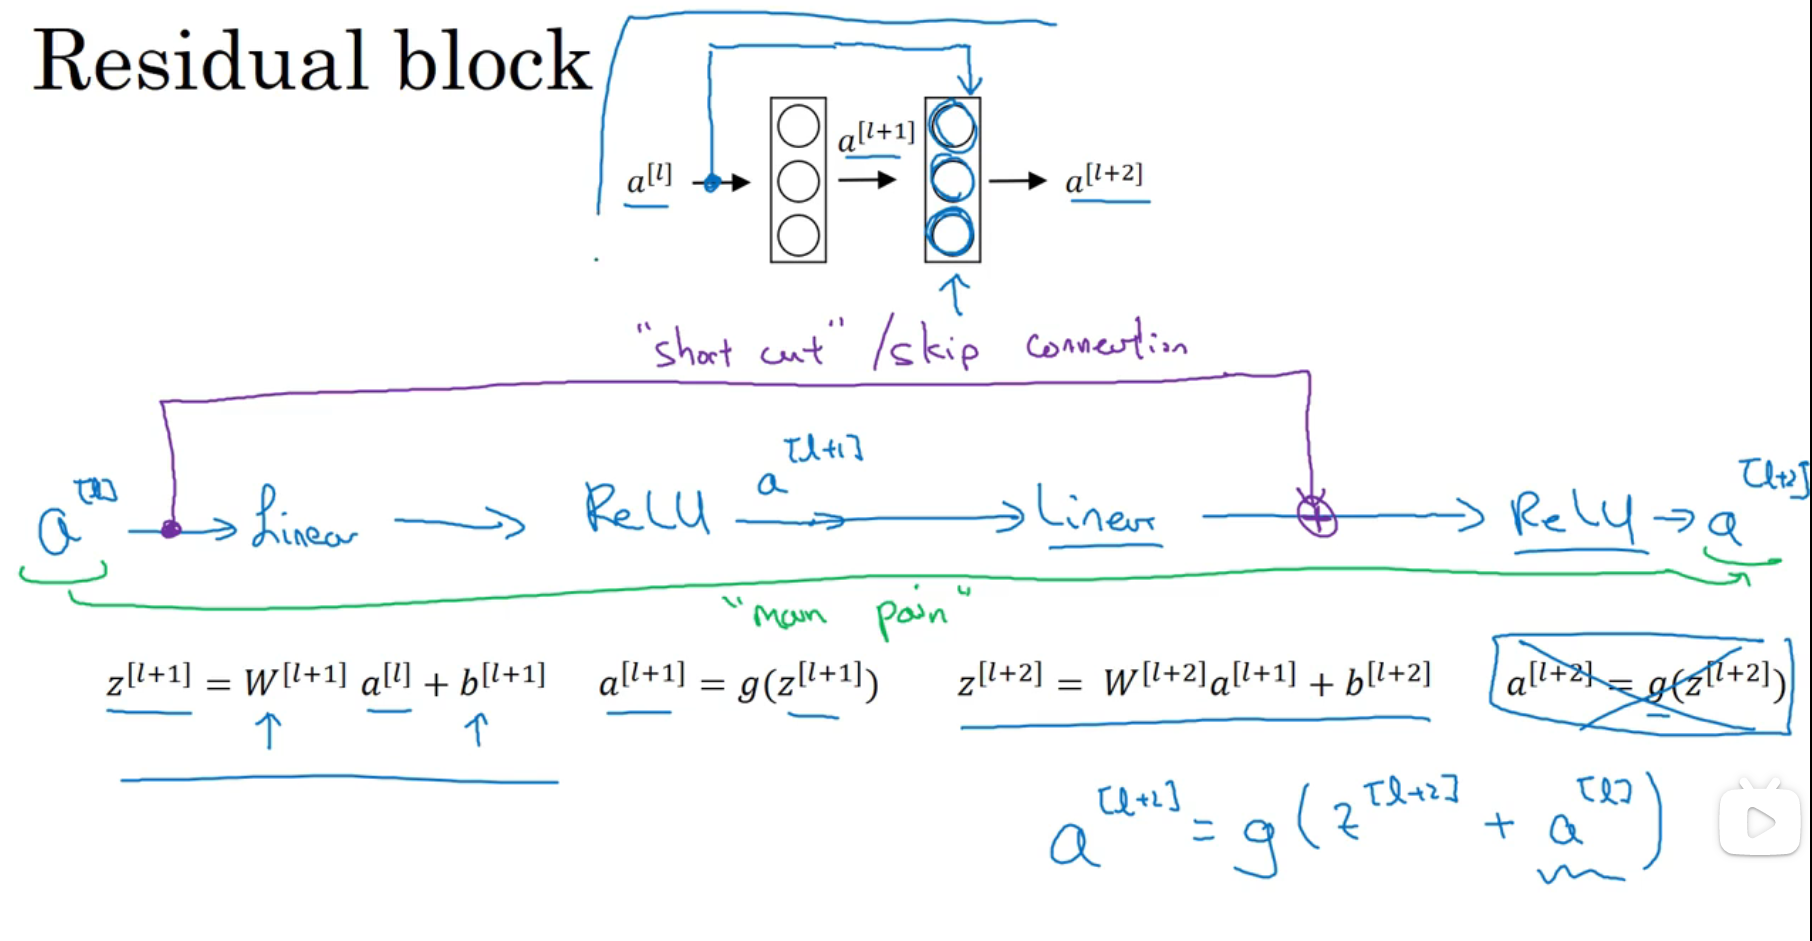 Residual block
a^[l] a^[l+1] a^[l+2]
"short cut" / skip connection
a^[l] → Linear → ReLU a^[l+1] → Linear → ReLU → a^[l+2]
"main pain"
z^[l+1] = W^[l+1] a^[l] + b^[l+1] a^[l+1] = g(z^[l+1]) z^[l+2] = W^[l+2]a^[l+1] + b^[l+2] a^[l+2] = g(z^[l+2])
a^[l+2] = g(z^[l+2] + a^[l])